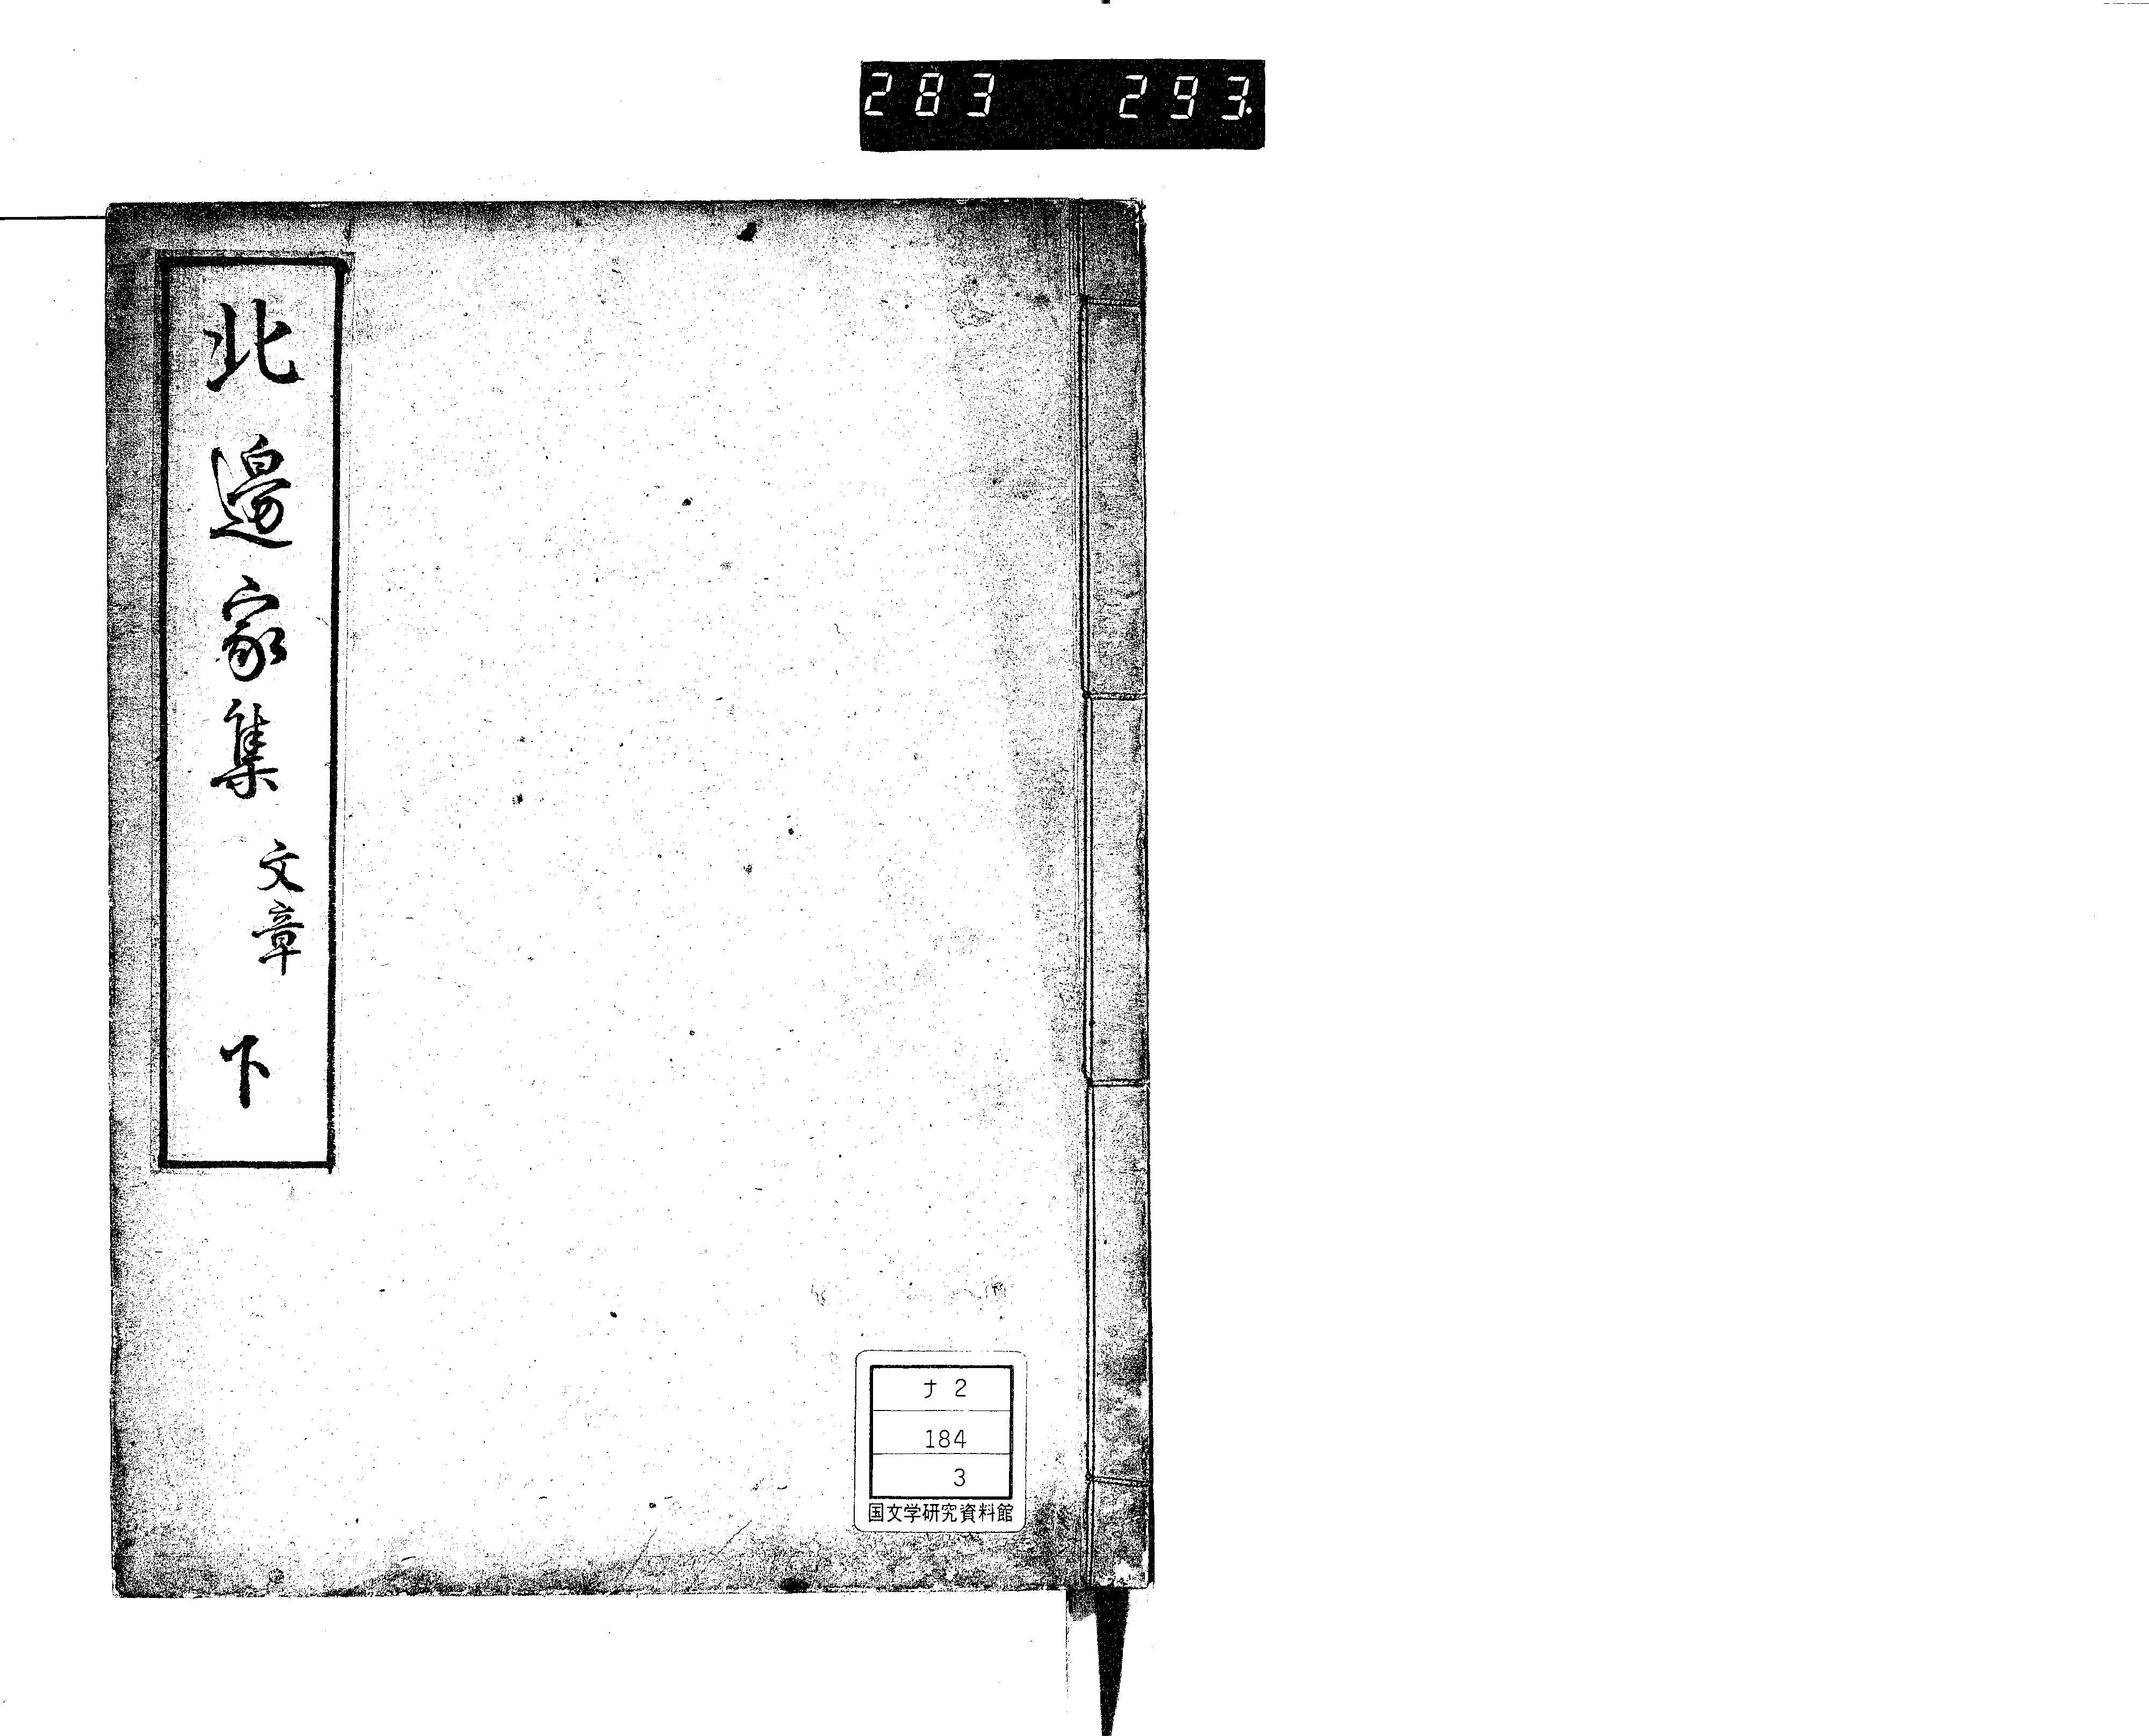 283 293.
北邊家集 文章 下
ナ 2
184
3
国文学研究資料館